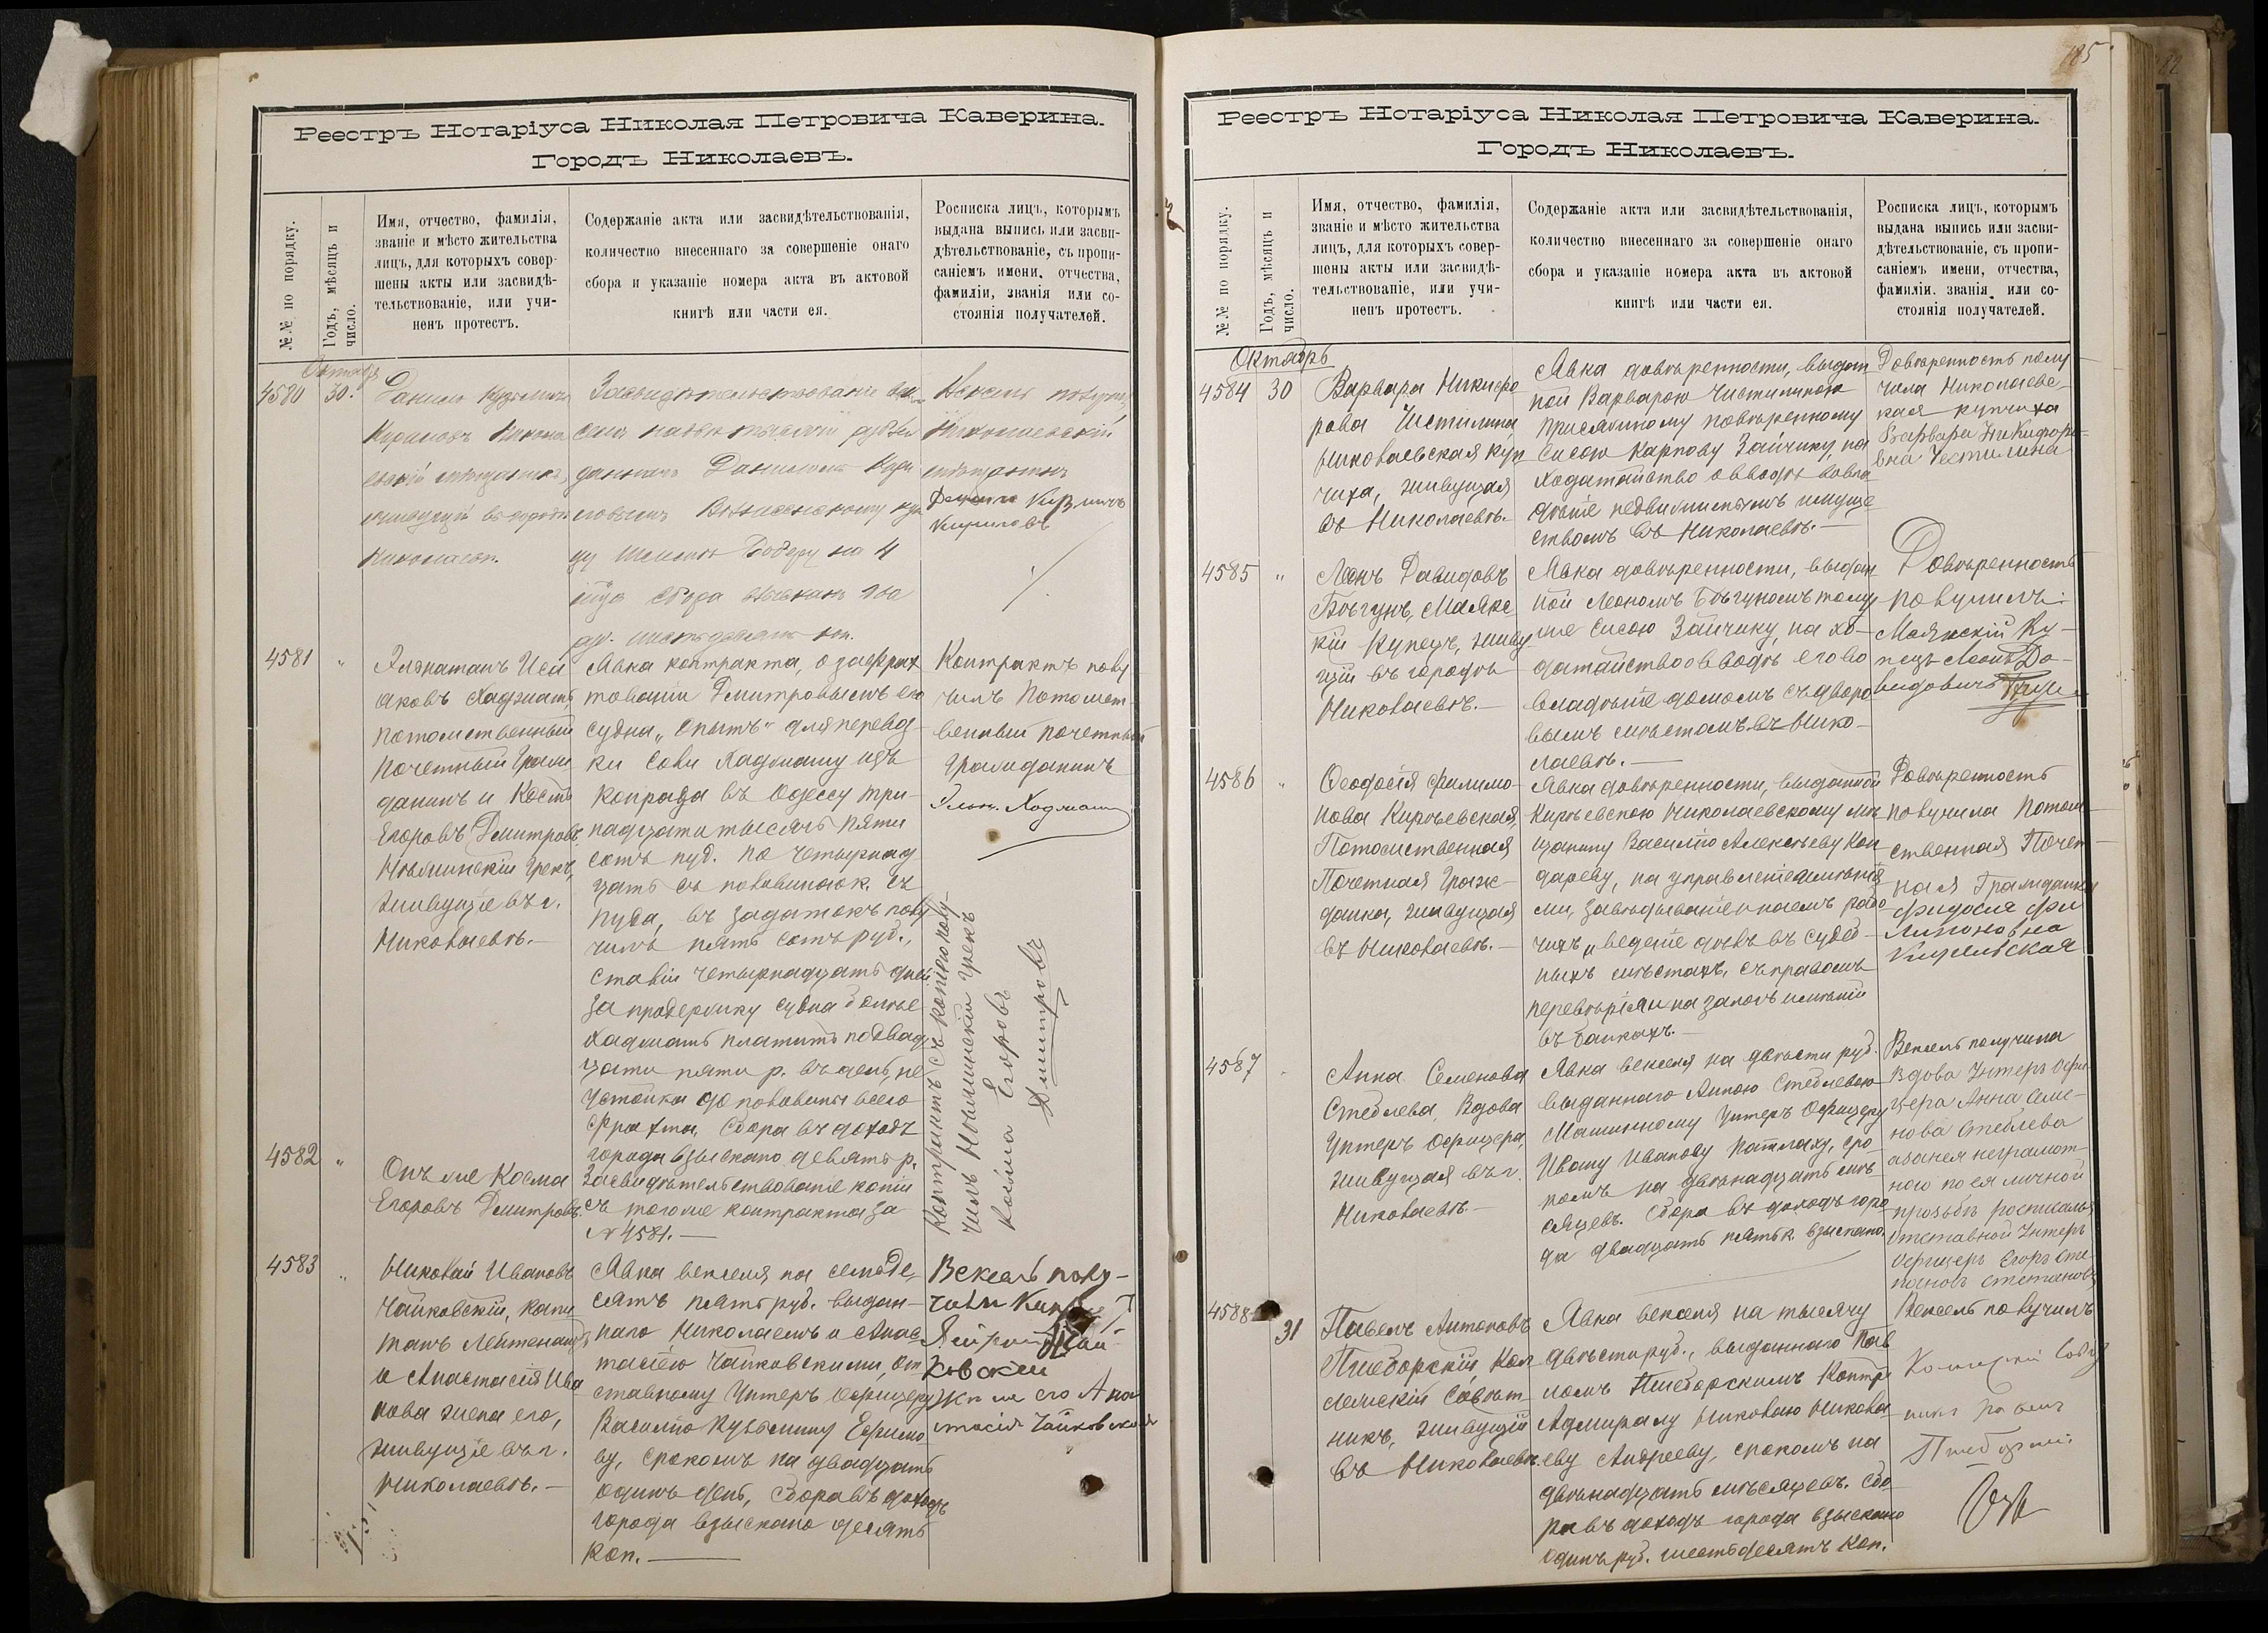 Реестръ Нотаріуса Николая Петровича Каверина.
Городъ Николаевъ.
№№ по порядку.
Годъ, мѣсяцъ и
число.
Имя, отчество, фамилія,
званіе и мѣсто жительства
лицъ, для которыхъ совер-
шены акты или засвидѣ-
тельствованіе, или учи-
ненъ протестъ.
Содержаніе акта или засвидѣтельствованія,
количество внесеннаго за совершеніе онаго
сбора и указаніе номера акта въ актовой
книгѣ или части ея.
Росписка лицъ, которымъ
выдана выпись или засви-
дѣтельствованіе, съ пропи-
саніемъ имени, отчества,
фамиліи, званія или со-
стоянія получателей.
4580
30.
живущій въ городѣ
4581
"
Потомственный
Почетный Граж
данинъ и Косма
Егоровъ Дмитровъ,
Нѣжинскій Грекъ,
живущіе въ г.
Николаевѣ.
Явка контракта, о зафрах
тованіи Дмитровымъ его
судна „Спытъ" для перевоз-
ки соли Хаджиату изъ
въ Одессу три-
надцати тысячъ пяти
сотъ пуд. по четырнад
цать съ половиною к. съ
пуда, въ задатокъ полу
чилъ пять сотъ руб.,
сталіи четырнадцать дней
за продержку судна болѣе
Хаджиатъ платитъ по двад
цати пяти р. въ день, не
устойка до половины всего
фрахта. Сбора въ доходъ
города взыскано девять р.
Контрактъ полу
чилъ Потомст-
венный почетный
Гражданинъ
4582
"
Онъ же Косма
Егоровъ Дмитровъ.
Засвидѣтельствованіе копіи
съ того же контракта за
№ 4581.
Контрактъ съ копіею полу-
чилъ Нѣжинскій Грекъ
Косьма Егоровъ
Дмитровъ
4583
"
Николай Ивановъ
Чайковскій, Капи
танъ Лейтенантъ
и Анастасія Ива
нова жена его,
живущіе въ г.
Николаевѣ.
Явка векселя на семьде-
сятъ пять руб. выдан-
наго Николаемъ и Анас
тасіею Чайковскими, от
ставному Унтеръ Офицеру
Василію Кузьмину Ефимо
ву, срокомъ на двадцать
одинъ день, сбора въ доходъ
города взыскано десять
коп.
Вексель полу-
чили
ковскій
Жена его Ана
стасія Чайковская
185
Реестръ Нотаріуса Николая Петровича Каверина.
Городъ Николаевъ.
№№ по порядку.
Годъ, мѣсяцъ и
число.
Имя, отчество, фамилія,
званіе и мѣсто жительства
лицъ, для которыхъ совер-
шены акты или засвидѣ-
тельствованіе, или учи-
ненъ протестъ.
Содержаніе акта или засвидѣтельствованія,
количество внесеннаго за совершеніе онаго
сбора и указаніе номера акта въ актовой
книгѣ или части ея.
Росписка лицъ, которымъ
выдана выпись или засви-
дѣтельствованіе, съ пропи-
саніемъ имени, отчества,
фамиліи, званія или со-
стоянія получателей.
Октябрь
4584
30
Варвара Никифо
рова Чистилина
Николаевская куп
чиха, живущая
въ Николаевѣ.
Явка довѣренности, выдан
ной Варварою Чистилиною
присяжному повѣренному
Сисою Карпову Зайчику, на
ходатайство о вводѣ во вла
дѣніе недвижимымъ имуще
ствомъ въ Николаевѣ.
Довѣренность полу
чила Николаевс
кая купчиха
Варвара Никифоро-
вна Чистилина
4585
"
Леонъ Давидовъ
Бѣгунъ, Маякс
кій Купецъ, живу
щій въ городѣ
Николаевѣ.
Явка довѣренности, выдан
ной Леономъ Бѣгуномъ тому
же Сисою Зайчику, на хо-
датайство о вводѣ его во
владѣніе домомъ съ дворо
вымъ мѣстомъ въ Нико-
лаевѣ.
Довѣренность
получилъ
Маякскій Ку-
пецъ Леонъ Да-
видовичъ
4586
"
Ѳеодосія Филимо-
нова Кирьевская,
Потомственная
Почетная Граж-
данка, живущая
въ Николаевѣ.
Явка довѣренности, выданной
Кирьевскою Николаевскому мѣ
щанину Василію Алексѣеву Кон
дареву, на управленіе имѣнія
ми, завѣдываніе и наемъ рабо
чихъ и веденіе дѣлъ въ судеб-
ныхъ мѣстахъ, съ правомъ
перевѣрія и на залогъ имѣній
въ банкахъ.
Довѣренность
получила Потом
ственная Почет-
ная Гражданка
Фидосія Фи
лимоновна
4587
Анна Семенова
Стеблева, Вдова
Унтеръ Офицера,
живущая въ г.
Николаевѣ
Явка векселя на двѣсти руб.
выданнаго Анною Стеблевою
Машинному Унтеръ Офицеру
Ивану Иванову Патлаху, сро
комъ на двѣнадцать мѣ
сяцевъ. Сбора въ доходъ горо
да двадцать пять к. взыскано.
Вексель получила
вдова Унтеръ Офи-
цера Анна Семе-
нова Стеблева
а за нея неграмот-
ною по ея личной
просьбѣ росписался
отставной Унтеръ
Офицеръ Егоръ Сте
пановъ Степановъ
4588
31
Павелъ Антоновъ
Пшеборскій, Кол
лежскій Совѣт
никъ, живущій
въ Николаевѣ.
Явка векселя на тысячу
двѣсти руб., выданнаго Пав
ломъ Пшеборскимъ Контръ
Адмиралу Николаю Никола
еву Андрееву, срокомъ на
двѣнадцать мѣсяцевъ. Сбо
ра въ доходъ города взыскано
одинъ руб. шестьдесятъ коп.
Вексель получилъ